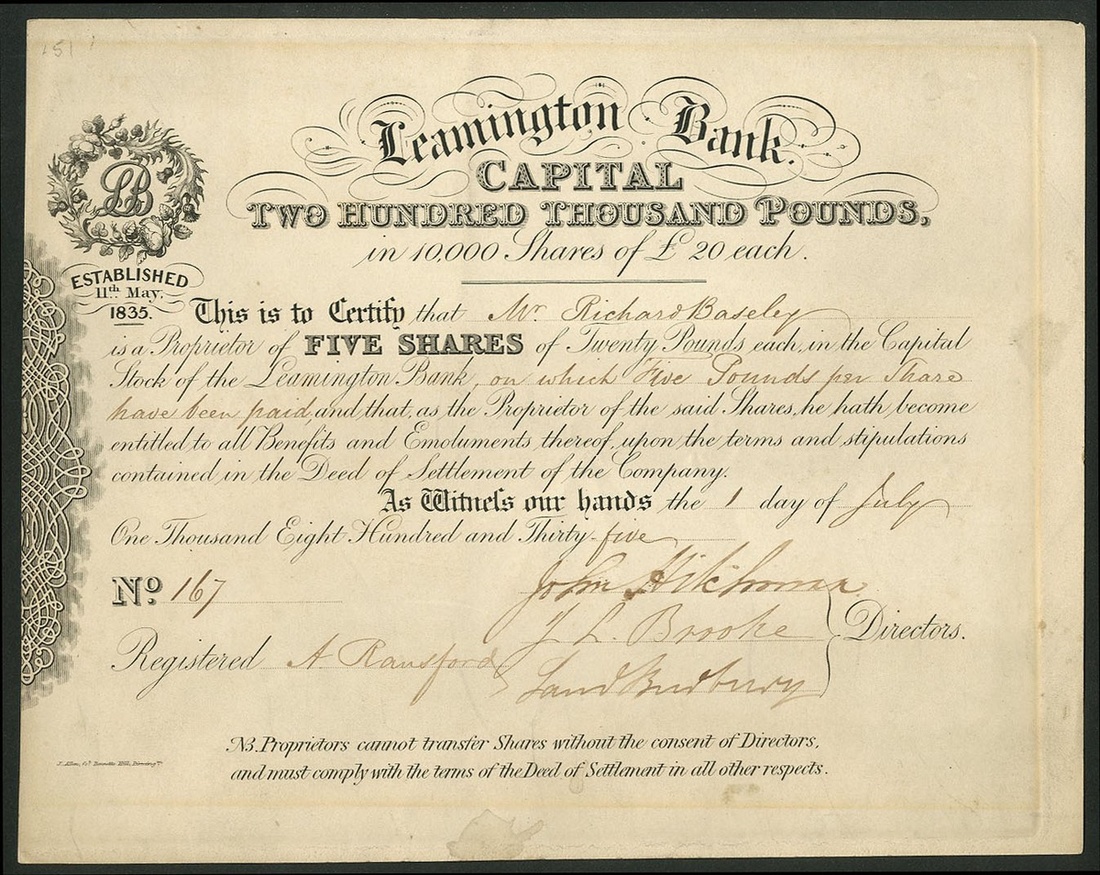 151
Leamington Bank.
CAPITAL
TWO HUNDRED THOUSAND POUNDS,
in 10,000 Shares of £ 20 each.
LB
ESTABLISHED
11th. May.
1835.
This is to Certify that Mr. Richard Baseley
is a Proprietor of FIVE SHARES of Twenty Pounds each, in the Capital
Stock of the Leamington Bank, on which Five Pounds per Share
have been paid, and that, as the Proprietor of the said Shares, he hath become
entitled to all Benefits and Emoluments thereof, upon the terms and stipulations
contained in the Deed of Settlement of the Company.
As Witneſs our hands the 1 day of July
One Thousand Eight Hundred and Thirty-five
No. 167
John Hitchman
L. Brooke
Directors.
Registered A Ransford
NB. Proprietors cannot transfer Shares without the consent of Directors,
and must comply with the terms of the Deed of Settlement in all other respects.